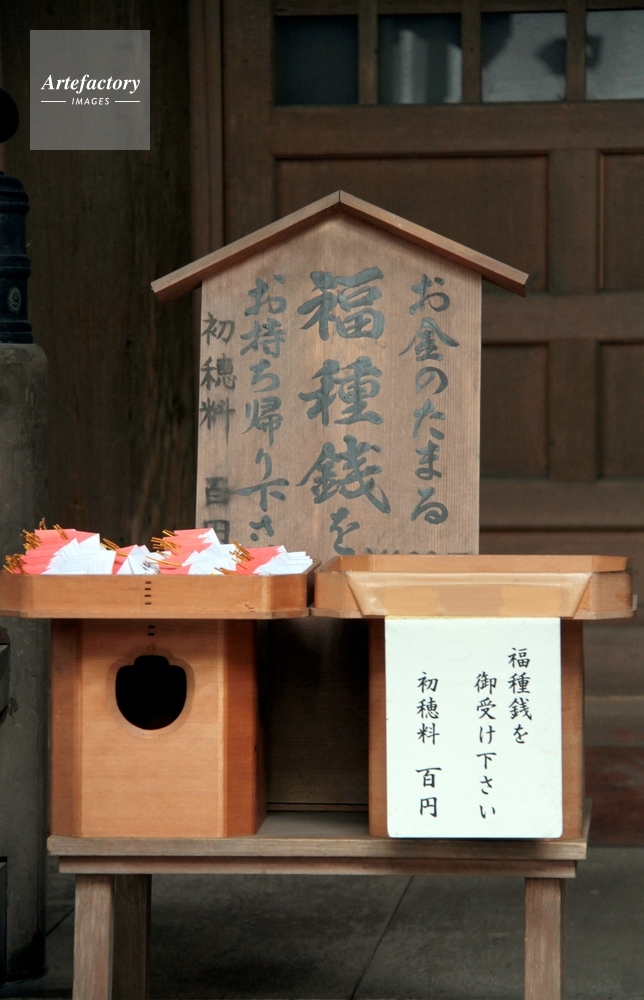 Artefactory
IMAGES
お金のたまる
福種銭を
お持ち帰り下さ
初穂料 百円
福種銭を
御受け下さい
初穂料 百円